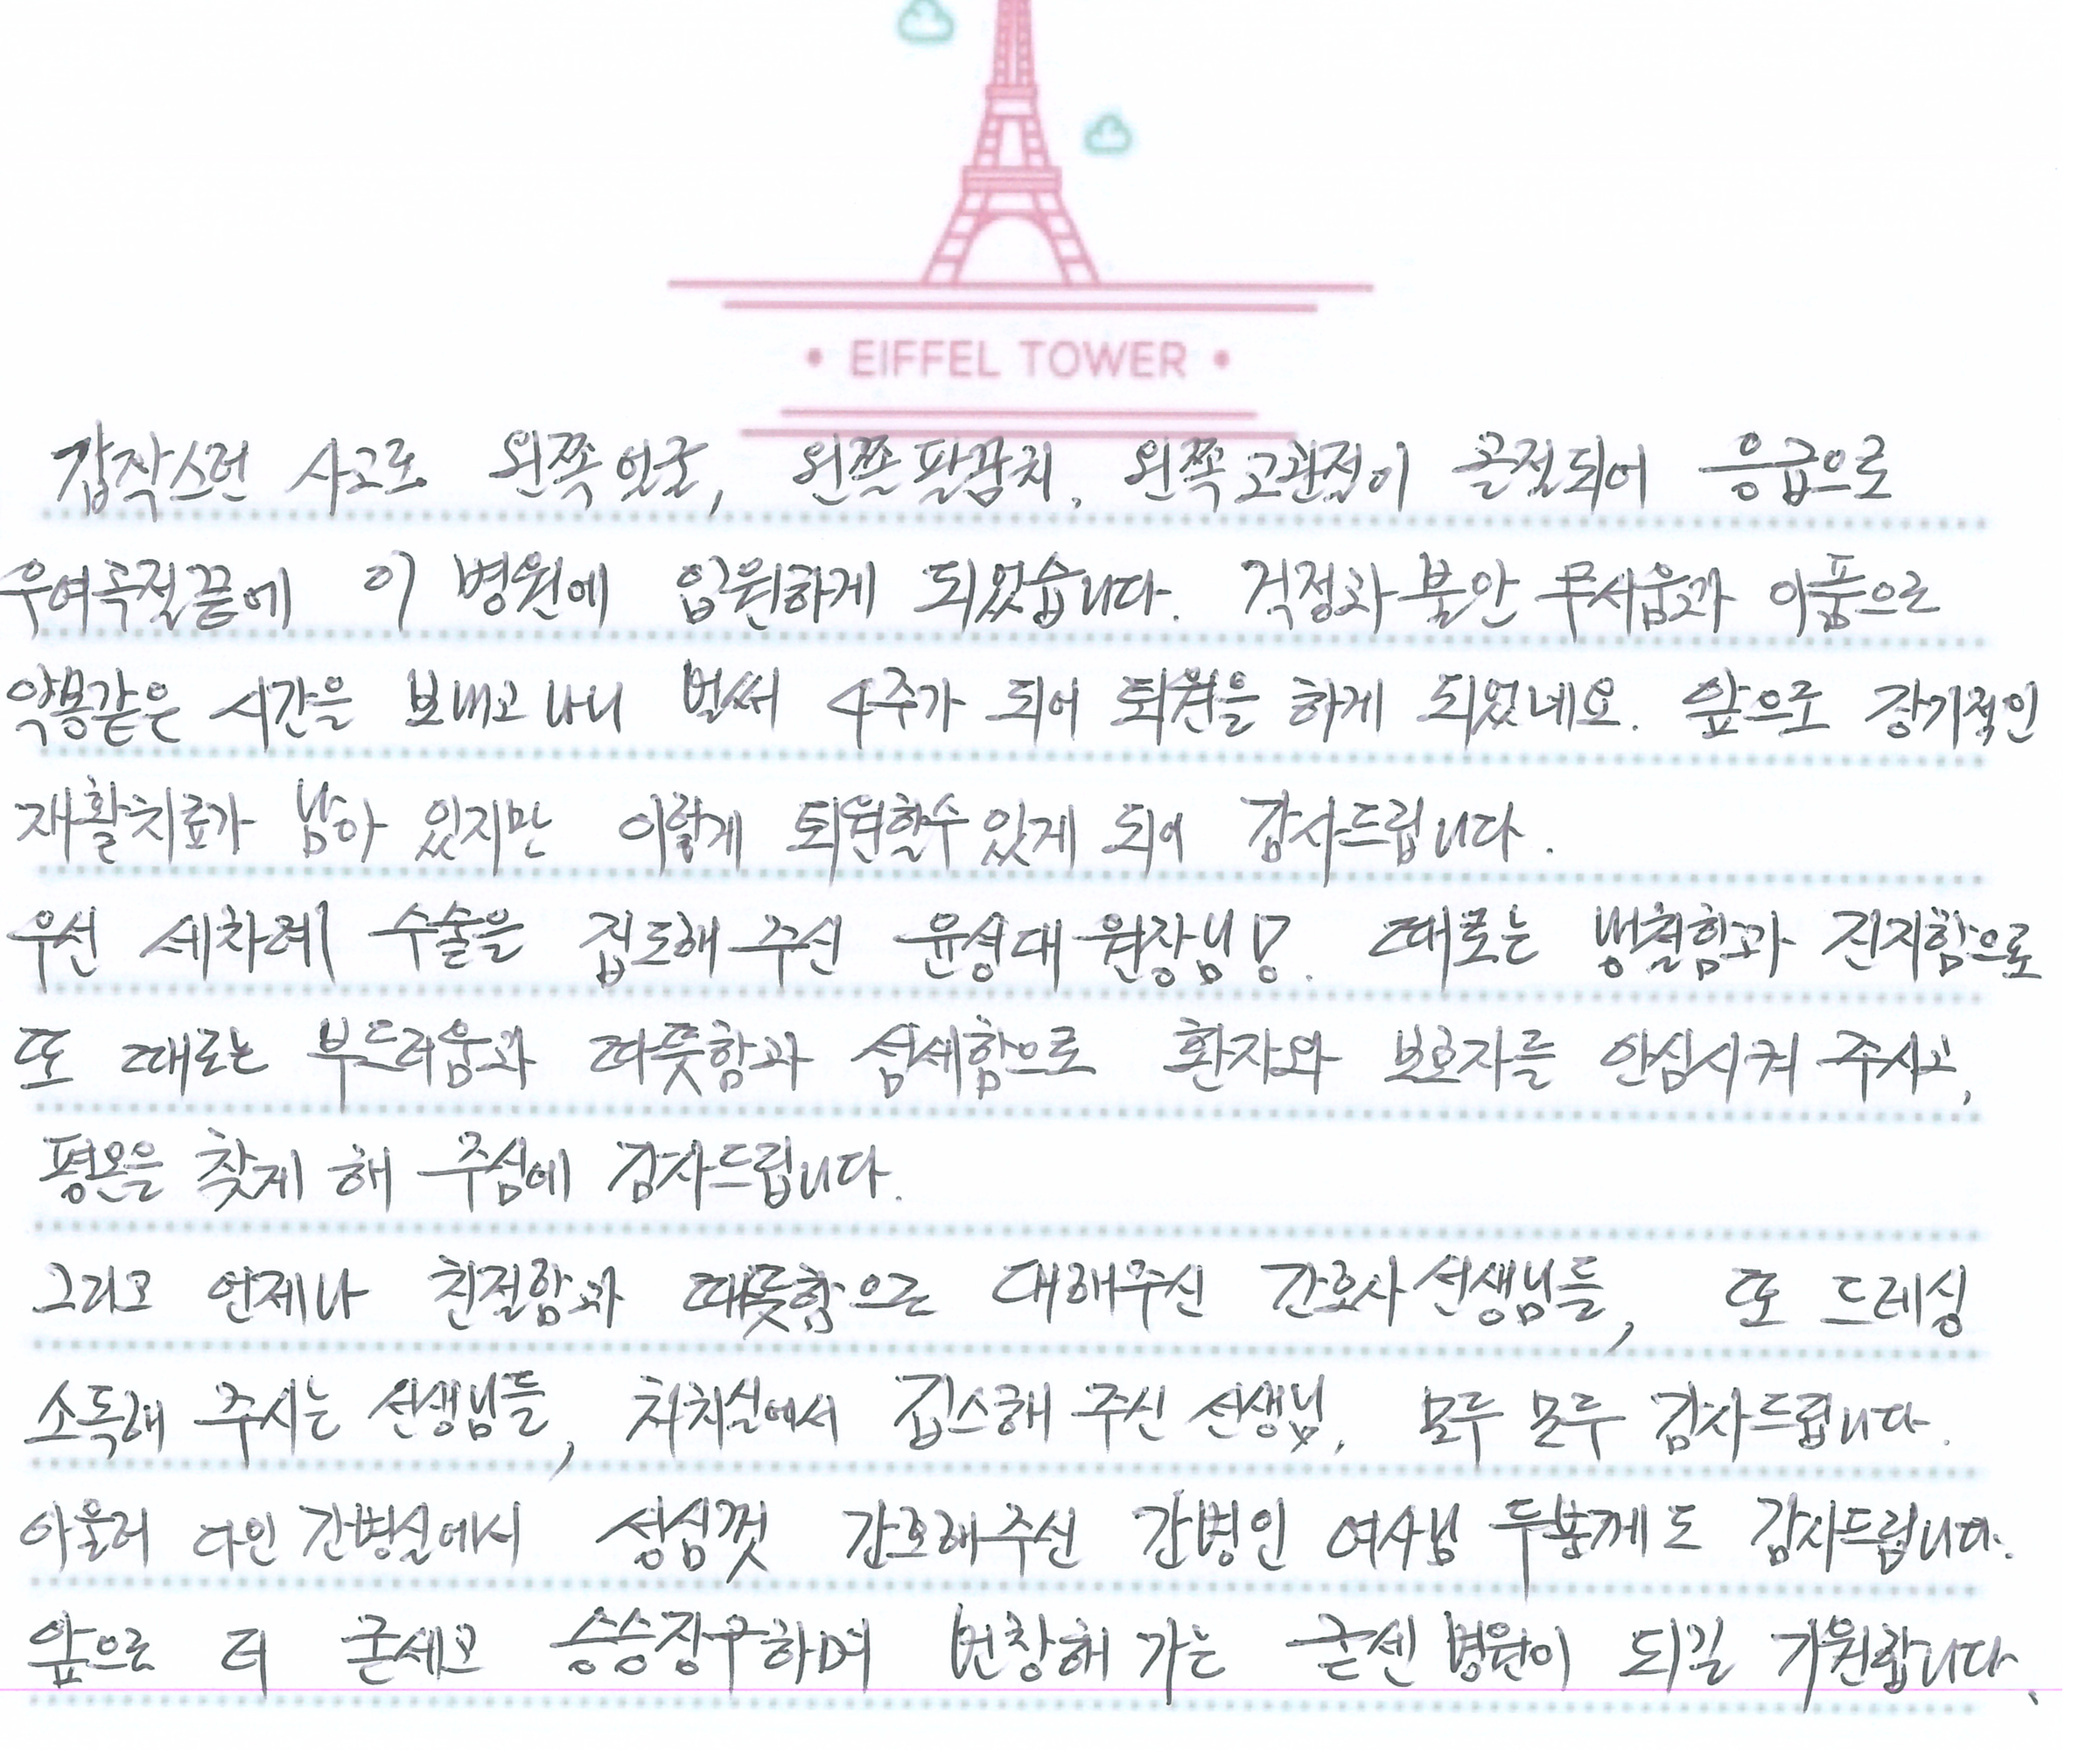 • EIFFEL TOWER •
갑작스런 사고로 왼쪽얼굴, 왼쪽팔꿈치, 왼쪽고관절이 골절되어 응급으로
우여곡절끝에 이 병원에 입원하게 되었습니다. 걱정과 불안 무서움과 아픔으로
악몽같은 시간을 보내고 나니 벌써 4주가 되어 퇴원을 하게 되었네요. 앞으로 장기적인
재활치료가 남아 있지만 이렇게 퇴원할수있게 되어 감사드립니다.
우선 세차례 수술을 집도해 주신 윤성대 원장님!. 때로는 냉철함과 진지함으로
또 때로는 부드러움과 따뜻함과 섬세함으로 환자와 보호자를 안심시켜 주시고,
평온을 찾게 해 주심에 감사드립니다.
그리고 언제나 친절함과 따뜻함으로 대해주신 간호사선생님들, 또 드레싱
소독해 주시는 선생님들, 처치실에서 깁스해 주신 선생님. 모두 모두 감사드립니다.
아울러 다인 간병실에서 성심껏 간호해주신 간병인 여사님 두분께도 감사드립니다.
앞으로 더 굳세고 승승장구하며 번창해 가는 굳센병원이 되길 기원합니다.